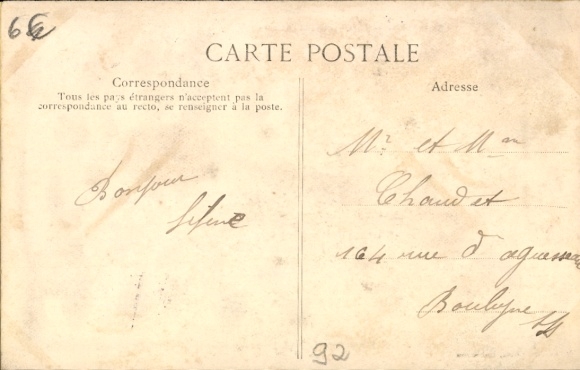 CARTE POSTALE
Correspondance
Tous les pays étrangers n'acceptent pas la
correspondance au recto, se renseigner à la poste.
Bonjour
Adresse
Mr et Mme
Chaudet
164 rue d'aguesseau
Boulogne
92